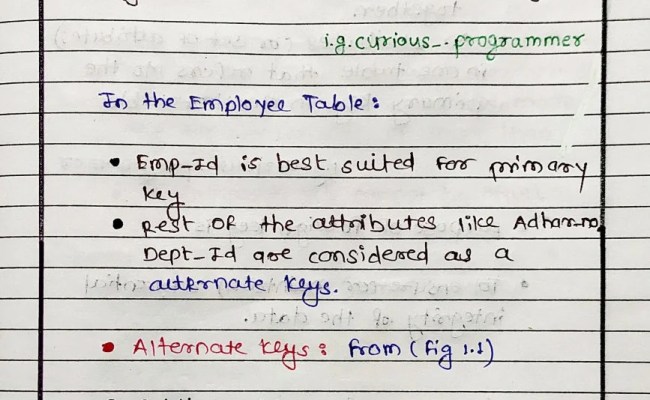 i.g. curious_.programmer
In the Employee Table :
• Emp-Id is best suited for primary
key
• Rest of the attributes like Adhar-no,
Dept-Id are considered as a
alternate keys.
• Alternate keys : From (fig 1.1)